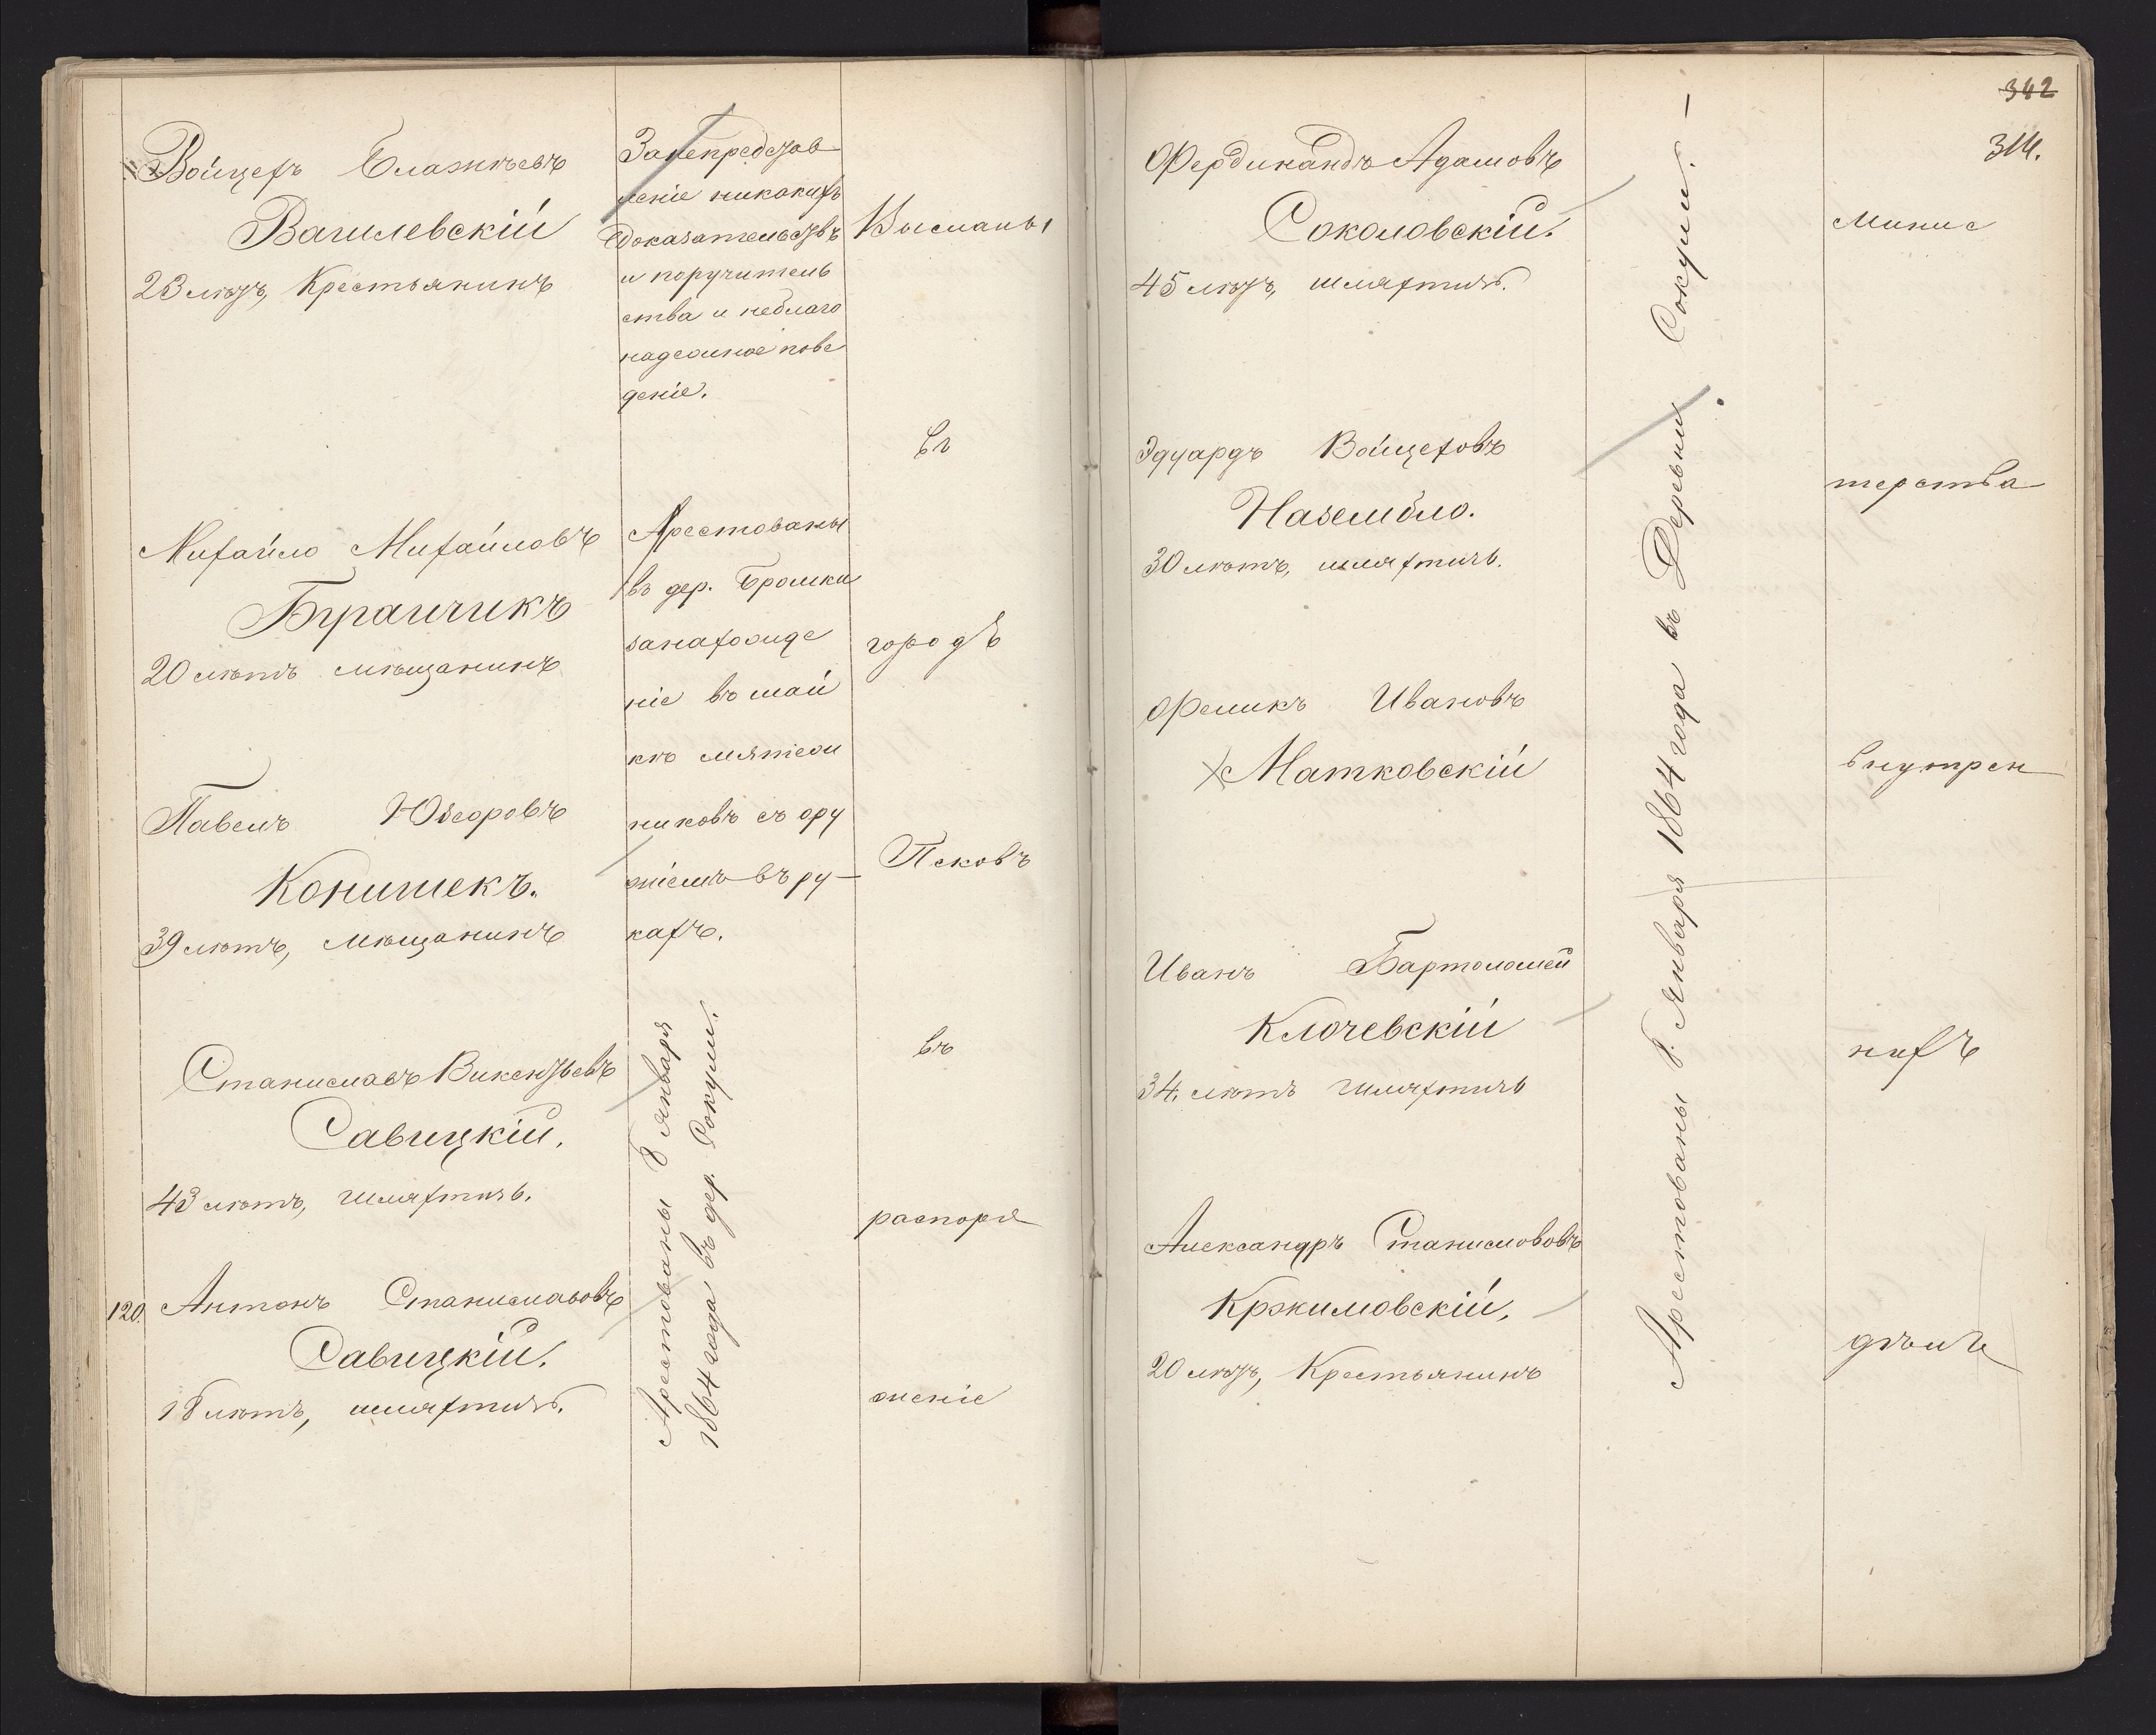 Войцехъ Блажѣевъ
Вашлевскій
23 лѣтъ, Крестьянинъ
За непредстав
леніе никакихъ
доказательствъ
и поручитель
ства и неблаго
надежное пове
деніе.
Михайло Михайловъ
Буранчикъ
20 лѣтъ мѣщанинъ
Арестованы
въ дер. Бромка
за нахожде
ніе въ шай
кѣ мятеж
никовъ съ ору
жіемъ въ ру
кахъ.
Павелъ Юзефовъ
Конишекъ.
39 лѣтъ, мѣщанинъ
Станиславъ Викентьевъ
Савицкій.
43 лѣтъ, шляхтичъ.
120. Антонъ Станиславовъ
Савицкій.
18 лѣтъ, шляхтичъ.
Арестованы 8 января
1864 года въ дер. Сокули.
Высланы
въ
городъ
Псковъ
въ
распоря
женіе
342
314.
Фердинандъ Адамовъ
Соколовскій.
45 лѣтъ, шляхтичъ.
Эдуардъ Войцеховъ
Назембло.
30 лѣтъ, шляхтичъ.
Феликъ Ивановъ
Матковскій
Иванъ Бартоломей
Ключевскій
34, лѣтъ шляхтичъ
Александръ Станиславовъ
Кржимовскій,
20 лѣтъ, Крестьянинъ
Арестованы 8. Января 1864 года въ Деревни Сокули. —
Минис
терства
внутрен
нихъ
дѣлъ